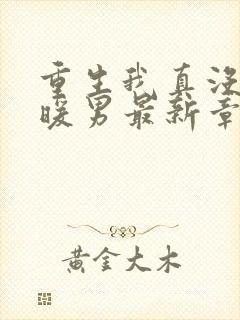 重生我真没
暖男最新章
黄金大木